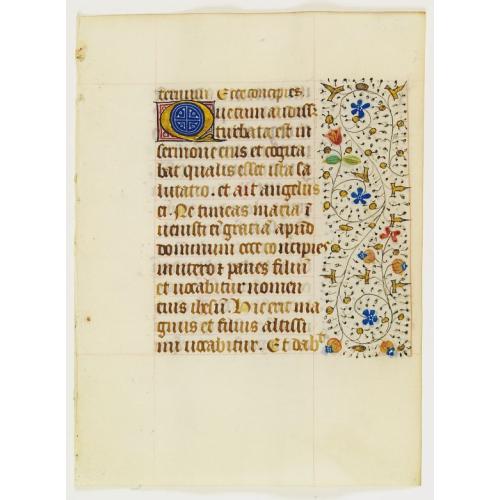 terminu. Ecce concipies.
Que cum audiss;
turbata est in
sermone eius et cogita
bat qualis esset ista sa
lutatio. et ait angelus
ei. Ne timeas maria i
uenisti ei gratia apud
dominum ecce concipies
in utero ⁊ paries filiu
et uocabitur nomen
eius ihesu. Hic erit ma
gnus et filius altissi
mi uocabitur. Et dabt